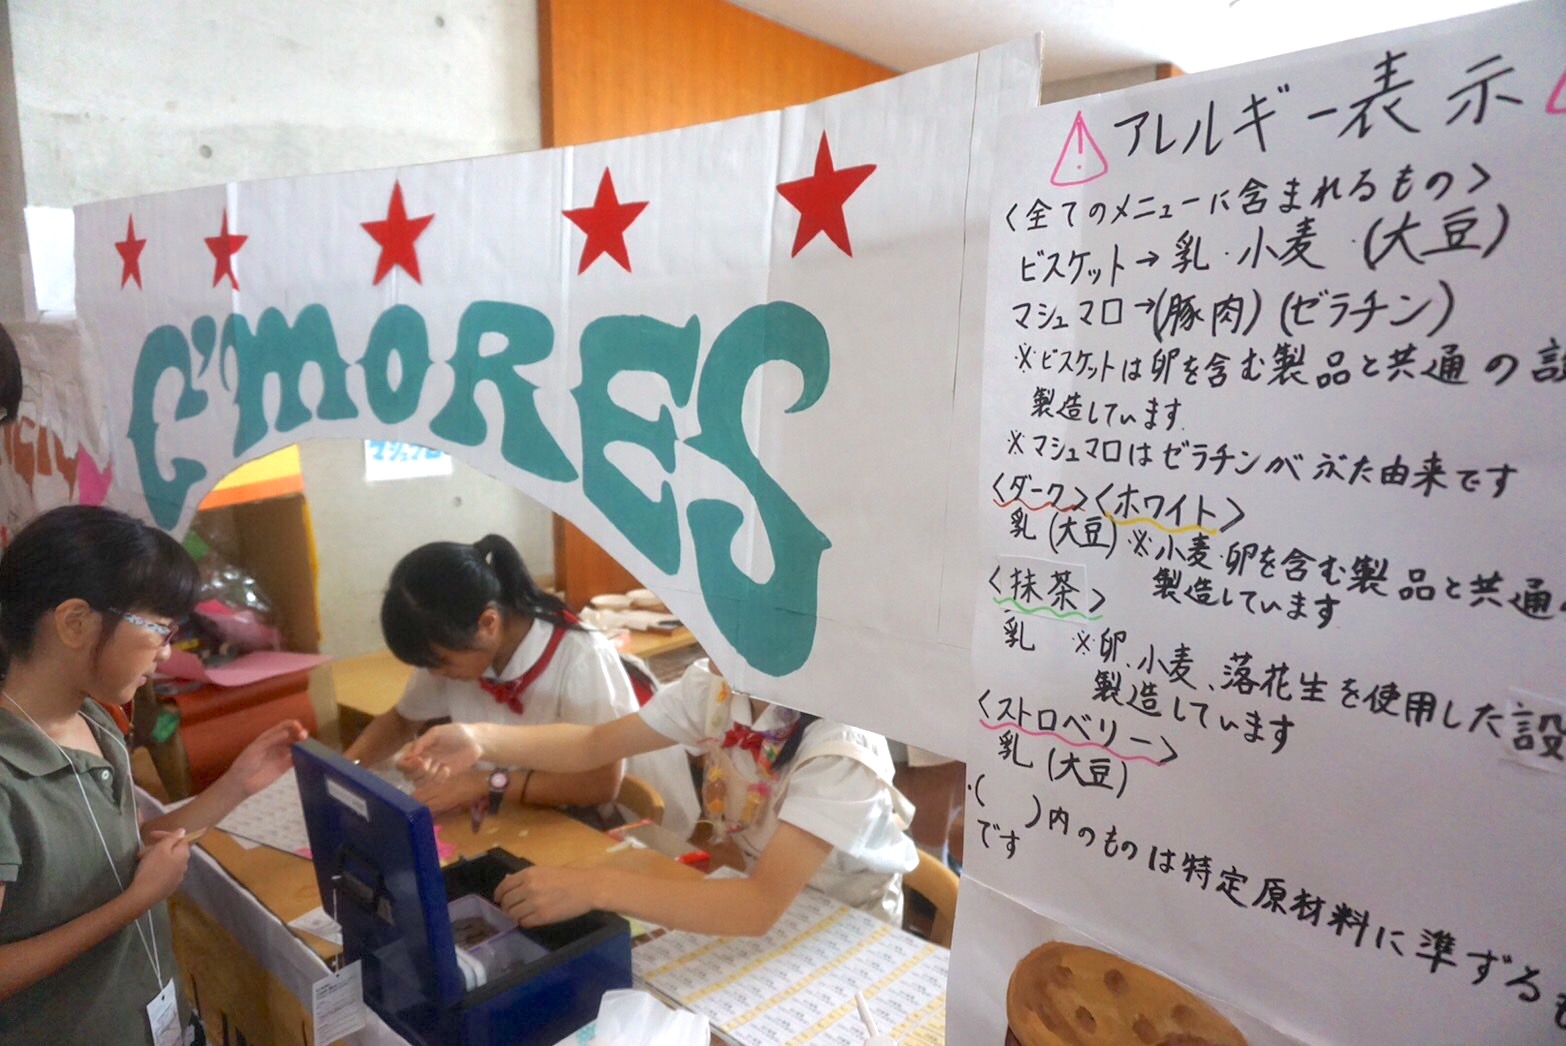 C'MORES
アレルギー表示
〈全てのメニューに含まれるもの〉
ビスケット→乳・小麦・(大豆)
マシュマロ→(豚肉)(ゼラチン)
※ビスケットは卵を含む製品と共通の設
製造しています.
※マシュマロはゼラチンがぶた由来です
〈ダーク〉〈ホワイト〉
乳(大豆)※小麦・卵を含む製品と共通
製造しています
〈抹茶〉
乳 ※卵、小麦、落花生を使用した設
製造しています
〈ストロベリー〉
乳(大豆)
・( )内のものは特定原材料に準ずるも
です